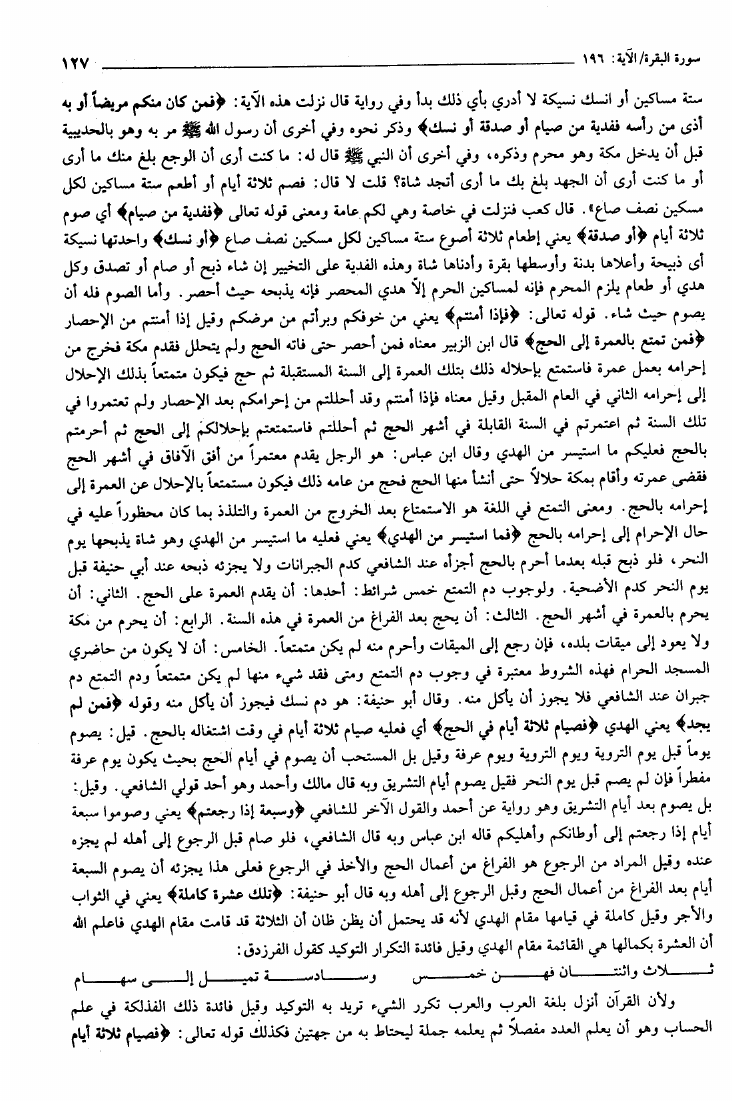 سورة البقرة/الآية: ١٩٦ ١٢٧
ستة مساكين أو انسك نسيكة لا أدري بأي ذلك بدأ وفي رواية قال نزلت هذه الآية: ﴿فمن كان منكم مريضاً أو به
أذى من رأسه ففدية من صيام أو صدقة أو نسك﴾ وذكر نحوه وفي أخرى أن رسول الله ﷺ مر به وهو بالحديبية
قبل أن يدخل مكة وهو محرم وذكره، وفي أخرى أن النبي ﷺ قال له: ما كنت أرى أن الوجع بلغ منك ما أرى
أو ما كنت أرى أن الجهد بلغ بك ما أرى أتجد شاة؟ قلت لا قال: فصم ثلاثة أيام أو أطعم ستة مساكين لكل
مسكين نصف صاع». قال كعب فنزلت في خاصة وهي لكم عامة ومعنى قوله تعالى ﴿ففدية من صيام﴾ أي صوم
ثلاثة أيام ﴿أو صدقة﴾ يعني إطعام ثلاثة أصوع ستة مساكين لكل مسكين نصف صاع ﴿أو نسك﴾ واحدتها نسيكة
أى ذبيحة وأعلاها بدنة وأوسطها بقرة وأدناها شاة وهذه الفدية على التخيير إن شاء ذبح أو صام أو تصدق وكل
هدي أو طعام يلزم المحرم فإنه لمساكين الحرم إلاّ هدي المحصر فإنه يذبحه حيث أحصر. وأما الصوم فله أن
يصوم حيث شاء. قوله تعالى: ﴿فإذا أمنتم﴾ يعني من خوفكم وبرأتم من مرضكم وقيل إذا أمنتم من الإحصار
﴿فمن تمتع بالعمرة إلى الحج﴾ قال ابن الزبير معناه فمن أحصر حتى فاته الحج ولم يتحلل فقدم مكة فخرج من
إحرامه بعمل عمرة فاستمتع بإحلاله ذلك بتلك العمرة إلى السنة المستقبلة ثم حج فيكون متمتعاً بذلك الإحلال
إلى إحرامه الثاني في العام المقبل وقيل معناه فإذا أمنتم وقد أحللتم من إحرامكم بعد الإحصار ولم تعتمروا في
تلك السنة ثم اعتمرتم في السنة القابلة في أشهر الحج ثم أحللتم فاستمتعتم بإحلالكم إلى الحج ثم أحرمتم
بالحج فعليكم ما استيسر من الهدي وقال ابن عباس: هو الرجل يقدم معتمراً من أفق الآفاق في أشهر الحج
فقضى عمرته وأقام بمكة حلالاً حتى أنشأ منها الحج فحج من عامه ذلك فيكون مستمتعاً بالإحلال عن العمرة إلى
إحرامه بالحج. ومعنى التمتع في اللغة هو الاستمتاع بعد الخروج من العمرة والتلذذ بما كان محظوراً عليه في
حال الإحرام إلى إحرامه بالحج ﴿فما استيسر من الهدي﴾ يعني فعليه ما استيسر من الهدي وهو شاة يذبحها يوم
النحر، فلو ذبح قبله بعدما أحرم بالحج أجزأه عند الشافعي كدم الجبرانات ولا يجزئه ذبحه عند أبي حنيفة قبل
يوم النحر كدم الأضحية. ولوجوب دم التمتع خمس شرائط: أحدها: أن يقدم العمرة على الحج. الثاني: أن
يحرم بالعمرة في أشهر الحج. الثالث: أن يحج بعد الفراغ من العمرة في هذه السنة. الرابع: أن يحرم من مكة
ولا يعود إلى ميقات بلده، فإن رجع إلى الميقات وأحرم منه لم يكن متمتعاً. الخامس: أن لا يكون من حاضري
المسجد الحرام فهذه الشروط معتبرة في وجوب دم التمتع ومتى فقد شيء منها لم يكن متمتعاً ودم التمتع دم
جبران عند الشافعي فلا يجوز أن يأكل منه. وقال أبو حنيفة: هو دم نسك فيجوز أن يأكل منه وقوله ﴿فمن لم
يجد﴾ يعني الهدي ﴿فصيام ثلاثة أيام في الحج﴾ أي فعليه صيام ثلاثة أيام في وقت اشتغاله بالحج. قيل: يصوم
يوماً قبل يوم التروية ويوم التروية ويوم عرفة وقيل بل المستحب أن يصوم في أيام الحج بحيث يكون يوم عرفة
مفطراً فإن لم يصم قبل يوم النحر فقيل يصوم أيام التشريق وبه قال مالك وأحمد وهو أحد قولي الشافعي. وقيل:
بل يصوم بعد أيام التشريق وهو رواية عن أحمد والقول الآخر للشافعي ﴿وسبعة إذا رجعتم﴾ يعني وصوموا سبعة
أيام إذا رجعتم إلى أوطانكم وأهليكم قاله ابن عباس وبه قال الشافعي، فلو صام قبل الرجوع إلى أهله لم يجزه
عنده وقيل المراد من الرجوع هو الفراغ من أعمال الحج والأخذ في الرجوع فعلى هذا يجزئه أن يصوم السبعة
أيام بعد الفراغ من أعمال الحج وقبل الرجوع إلى أهله وبه قال أبو حنيفة: ﴿تلك عشرة كاملة﴾ يعني في الثواب
والأجر وقيل كاملة في قيامها مقام الهدي لأنه قد يحتمل أن يظن ظان أن الثلاثة قد قامت مقام الهدي فاعلم الله
أن العشرة بكمالها هي القائمة مقام الهدي وقيل فائدة التكرار التوكيد كقول الفرزدق:
ثـلاث واثنتـان فهـن خمـس وسـادسـة تميـل إلـى سهـام
ولأن القرآن أنزل بلغة العرب والعرب تكرر الشيء تريد به التوكيد وقيل فائدة ذلك الفذلكة في علم
الحساب وهو أن يعلم العدد مفصلاً ثم يعلمه جملة ليحتاط به من جهتين فكذلك قوله تعالى: ﴿فصيام ثلاثة أيام